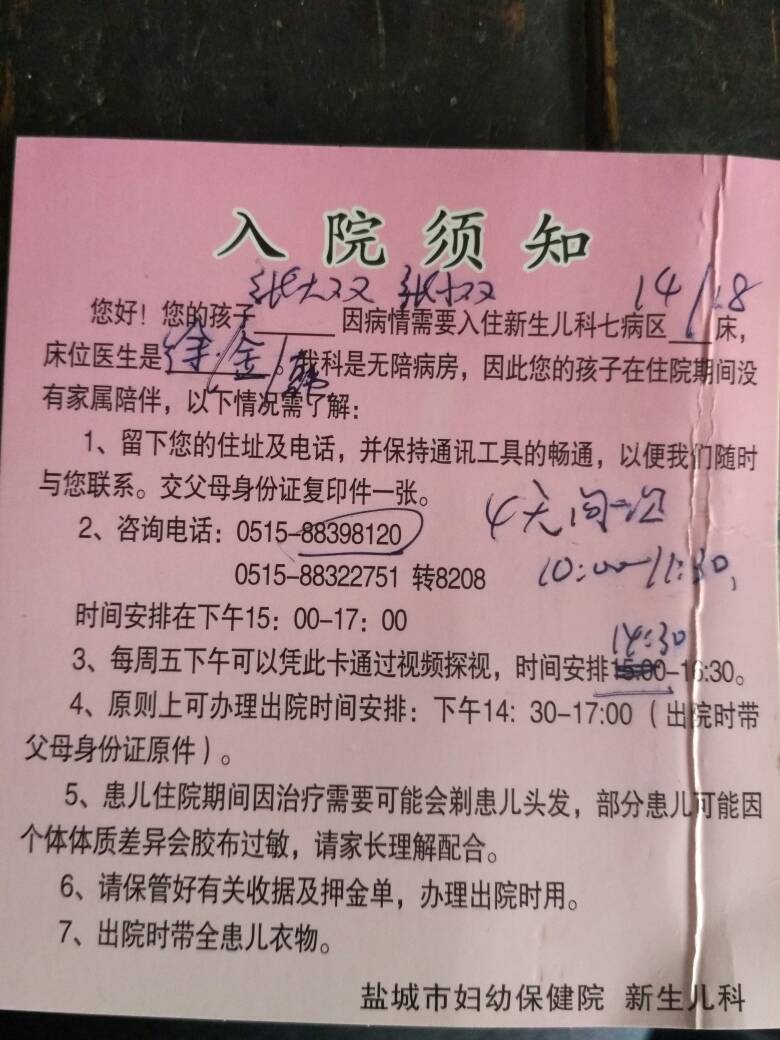 入院须知
张大双 张小双 14/18
您好！您的孩子______因病情需要入住新生儿科七病区___床，
床位医生是徐/金/ 。我科是无陪病房，因此您的孩子在住院期间没
有家属陪伴，以下情况需了解：
1、留下您的住址及电话，并保持通讯工具的畅通，以便我们随时
与您联系。交父母身份证复印件一张。
4天问一次
2、咨询电话：0515-88398120
10:00-11:30，
0515-88322751 转8208
时间安排在下午15：00-17：00
14:30
3、每周五下午可以凭此卡通过视频探视，时间安排15:00-16:30。
4、原则上可办理出院时间安排：下午14：30-17:00（出院时带
父母身份证原件）。
5、患儿住院期间因治疗需要可能会剃患儿头发，部分患儿可能因
个体体质差异会胶布过敏，请家长理解配合。
6、请保管好有关收据及押金单，办理出院时用。
7、出院时带全患儿衣物。
盐城市妇幼保健院 新生儿科